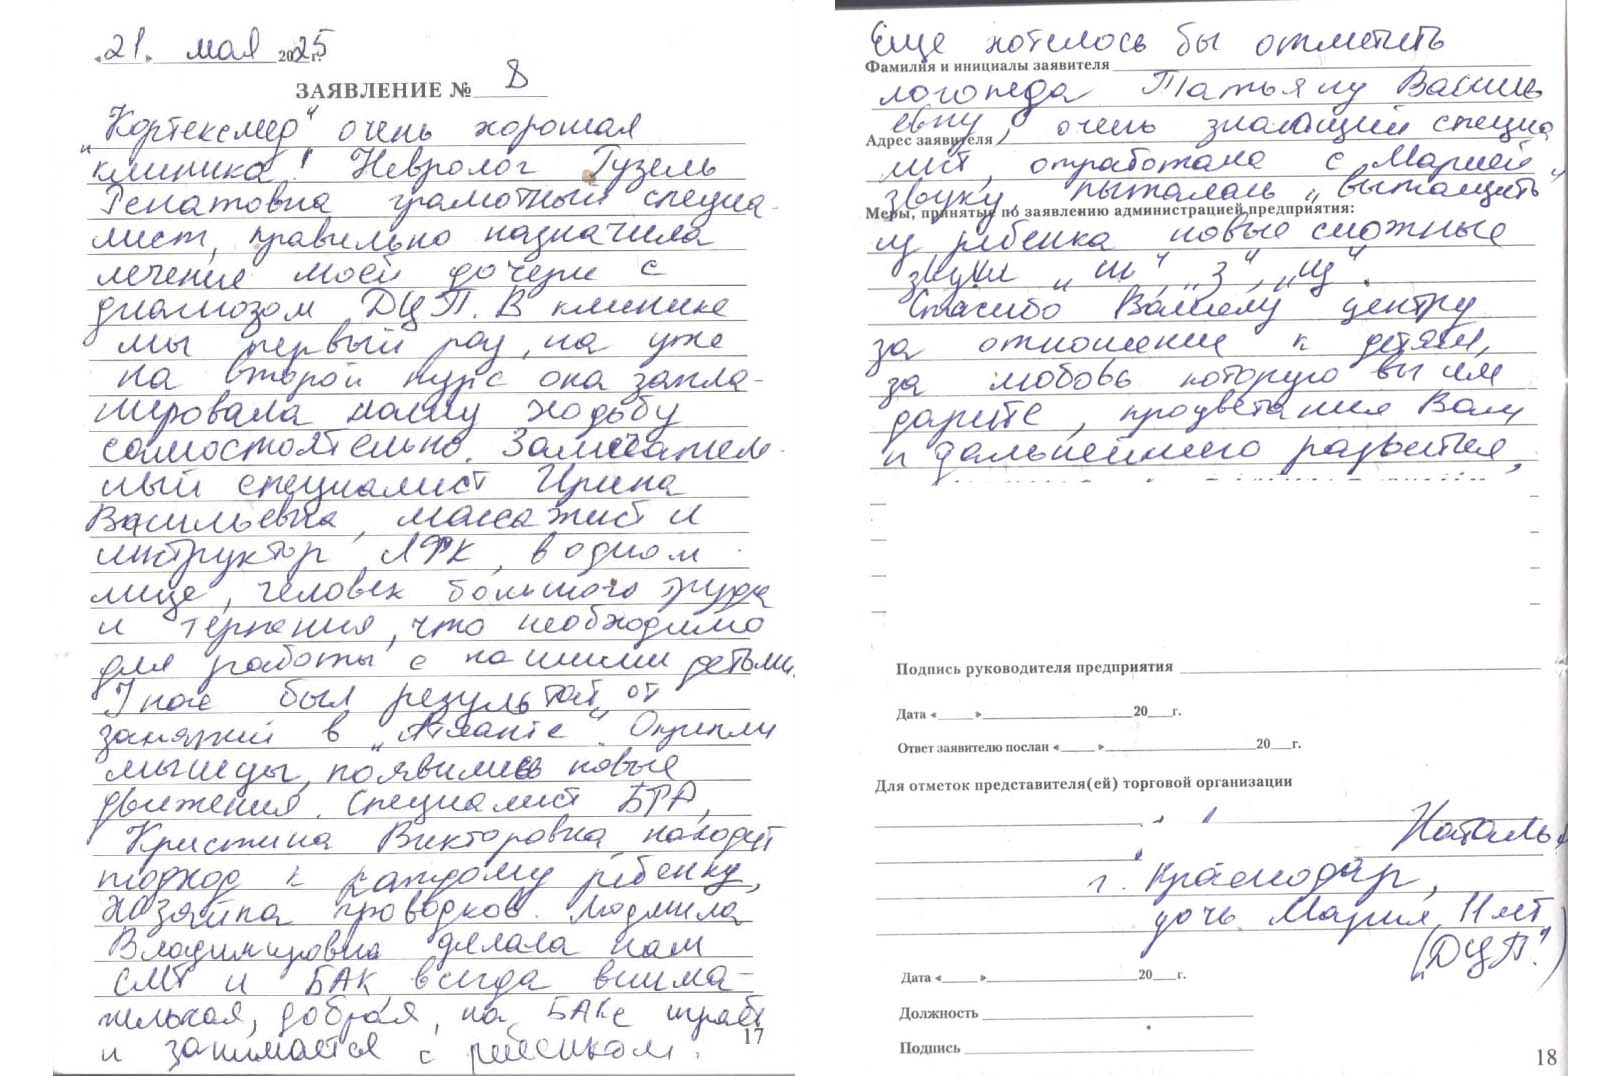 «21» мая 2025г.
ЗАЯВЛЕНИЕ № 8
"Кортексмед" очень хорошая
клиника! Невролог Гузель
Ренатовна грамотный специа-
лист, правильно назначила
лечение моей дочери с
диагнозом ДЦП. В клинике
мы первый раз, на уже
на второй курс она запла-
нировала нашу ходьбу
самостоятельно. Замечатель-
ный специалист Ирина
Васильевна, массажист и
инструктор ЛФК, в одном
лице, человек большого труда
и терпения, что необходимо
для работы с нашими детьми.
Также был результат от
занятий в "Атланте". Окрепли
мышцы, появились новые
движения. Специалист БТА,
Кристина Викторовна находит
подход к каждому ребенку,
хозяйка проводков. Людмила
Владимировна делала нам
СМТ и БАК всегда внима-
тельная, добрая, на БАКе играет
и занимается с ребенком.
17
Еще хотелось бы отметить
Фамилия и инициалы заявителя
логопеда Татьяну Василь
евну, очень знающий специа
Адрес заявителя
лист, отработала с Марией
звуки, пыталась "вытащить"
Меры, принятые по заявлению администрацией предприятия:
у ребенка новые сложные
звуки "ш", "з", "щ".
Спасибо Вашему центру
за отношение к детям,
за любовь которую вы им
дарите, процветания Вам
и дальнейшего развития,
Подпись руководителя предприятия
Дата «____»____20__г.
Ответ заявителю послан «____»____20__г.
Для отметок представителя(ей) торговой организации
Наталья
г. Краснодар,
дочь Мария, 11 лет
("ДЦП")
Дата «____»____20__г.
Должность
Подпись
18